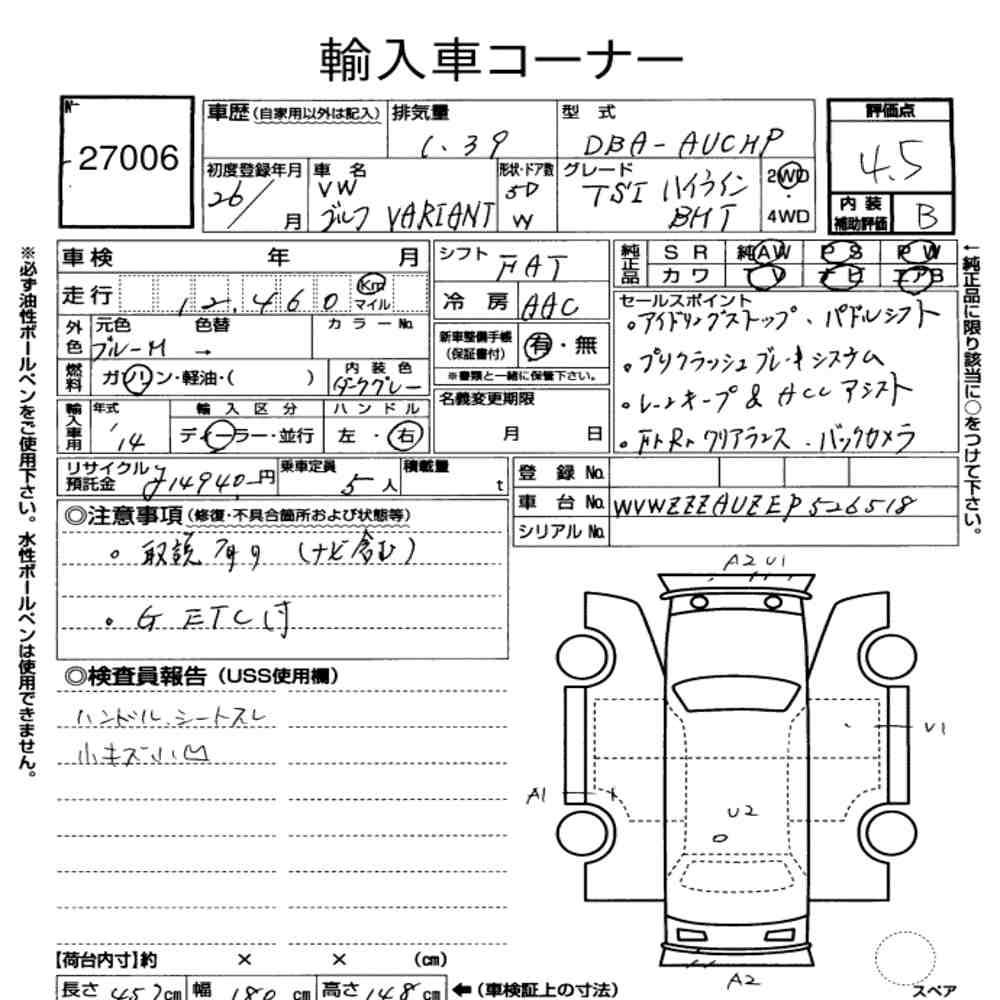 輸入車コーナー
No
27006
車歴 (自家用以外は記入)
排気量
1.39
型式
DBA-AUCHP
評価点
4.5
初度登録年月
26/ 月
車名
VW
ゴルフ VARIANT
形状・ドア数
5D
W
グレード
TSI ハイライン
BMT
2WD
・
4WD
内装
補助評価
B
車検 年 月
走行 12,460 Km マイル
外色
元色 色替 カラーNo.
ブルーM →
燃料
ガソリン・軽油・( )
内装色
ダークグレー
輸入車用
年式
'14
輸入区分
ディーラー・並行
ハンドル
左・右
リサイクル預託金
¥14940 円
乗車定員
5人
積載量
t
シフト
FAT
冷房
AAC
新車整備手帳
(保証書付)
有・無
※書類と一緒に保管下さい。
名義変更期限
月 日
純正品
SR 純AW PS PW
カワ TV ナビ エアB
セールスポイント
。アイドリングストップ、パドルシフト
。プリクラッシュブレーキシステム
。レーンキープ & ACC アシスト
。Ft Rr クリアランス、バックカメラ
登録No.
車台No. WVWZZZAUZEP526518
シリアルNo.
◎注意事項 (修復・不具合箇所および状態等)
。取説有り (ナビ含む)
。G ETC付
◎検査員報告 (USS使用欄)
ハンドル、シートスレ
小キズ小凹
A2 U1
U1
A1
U2
A2
スペア
【荷台内寸】約 × × (cm)
長さ 457cm 幅 180cm 高さ 148cm ←(車検証上の寸法)
※必ず油性ボールペンをご使用下さい。水性ボールペンは使用できません。
←純正品に限り該当に○をつけて下さい。